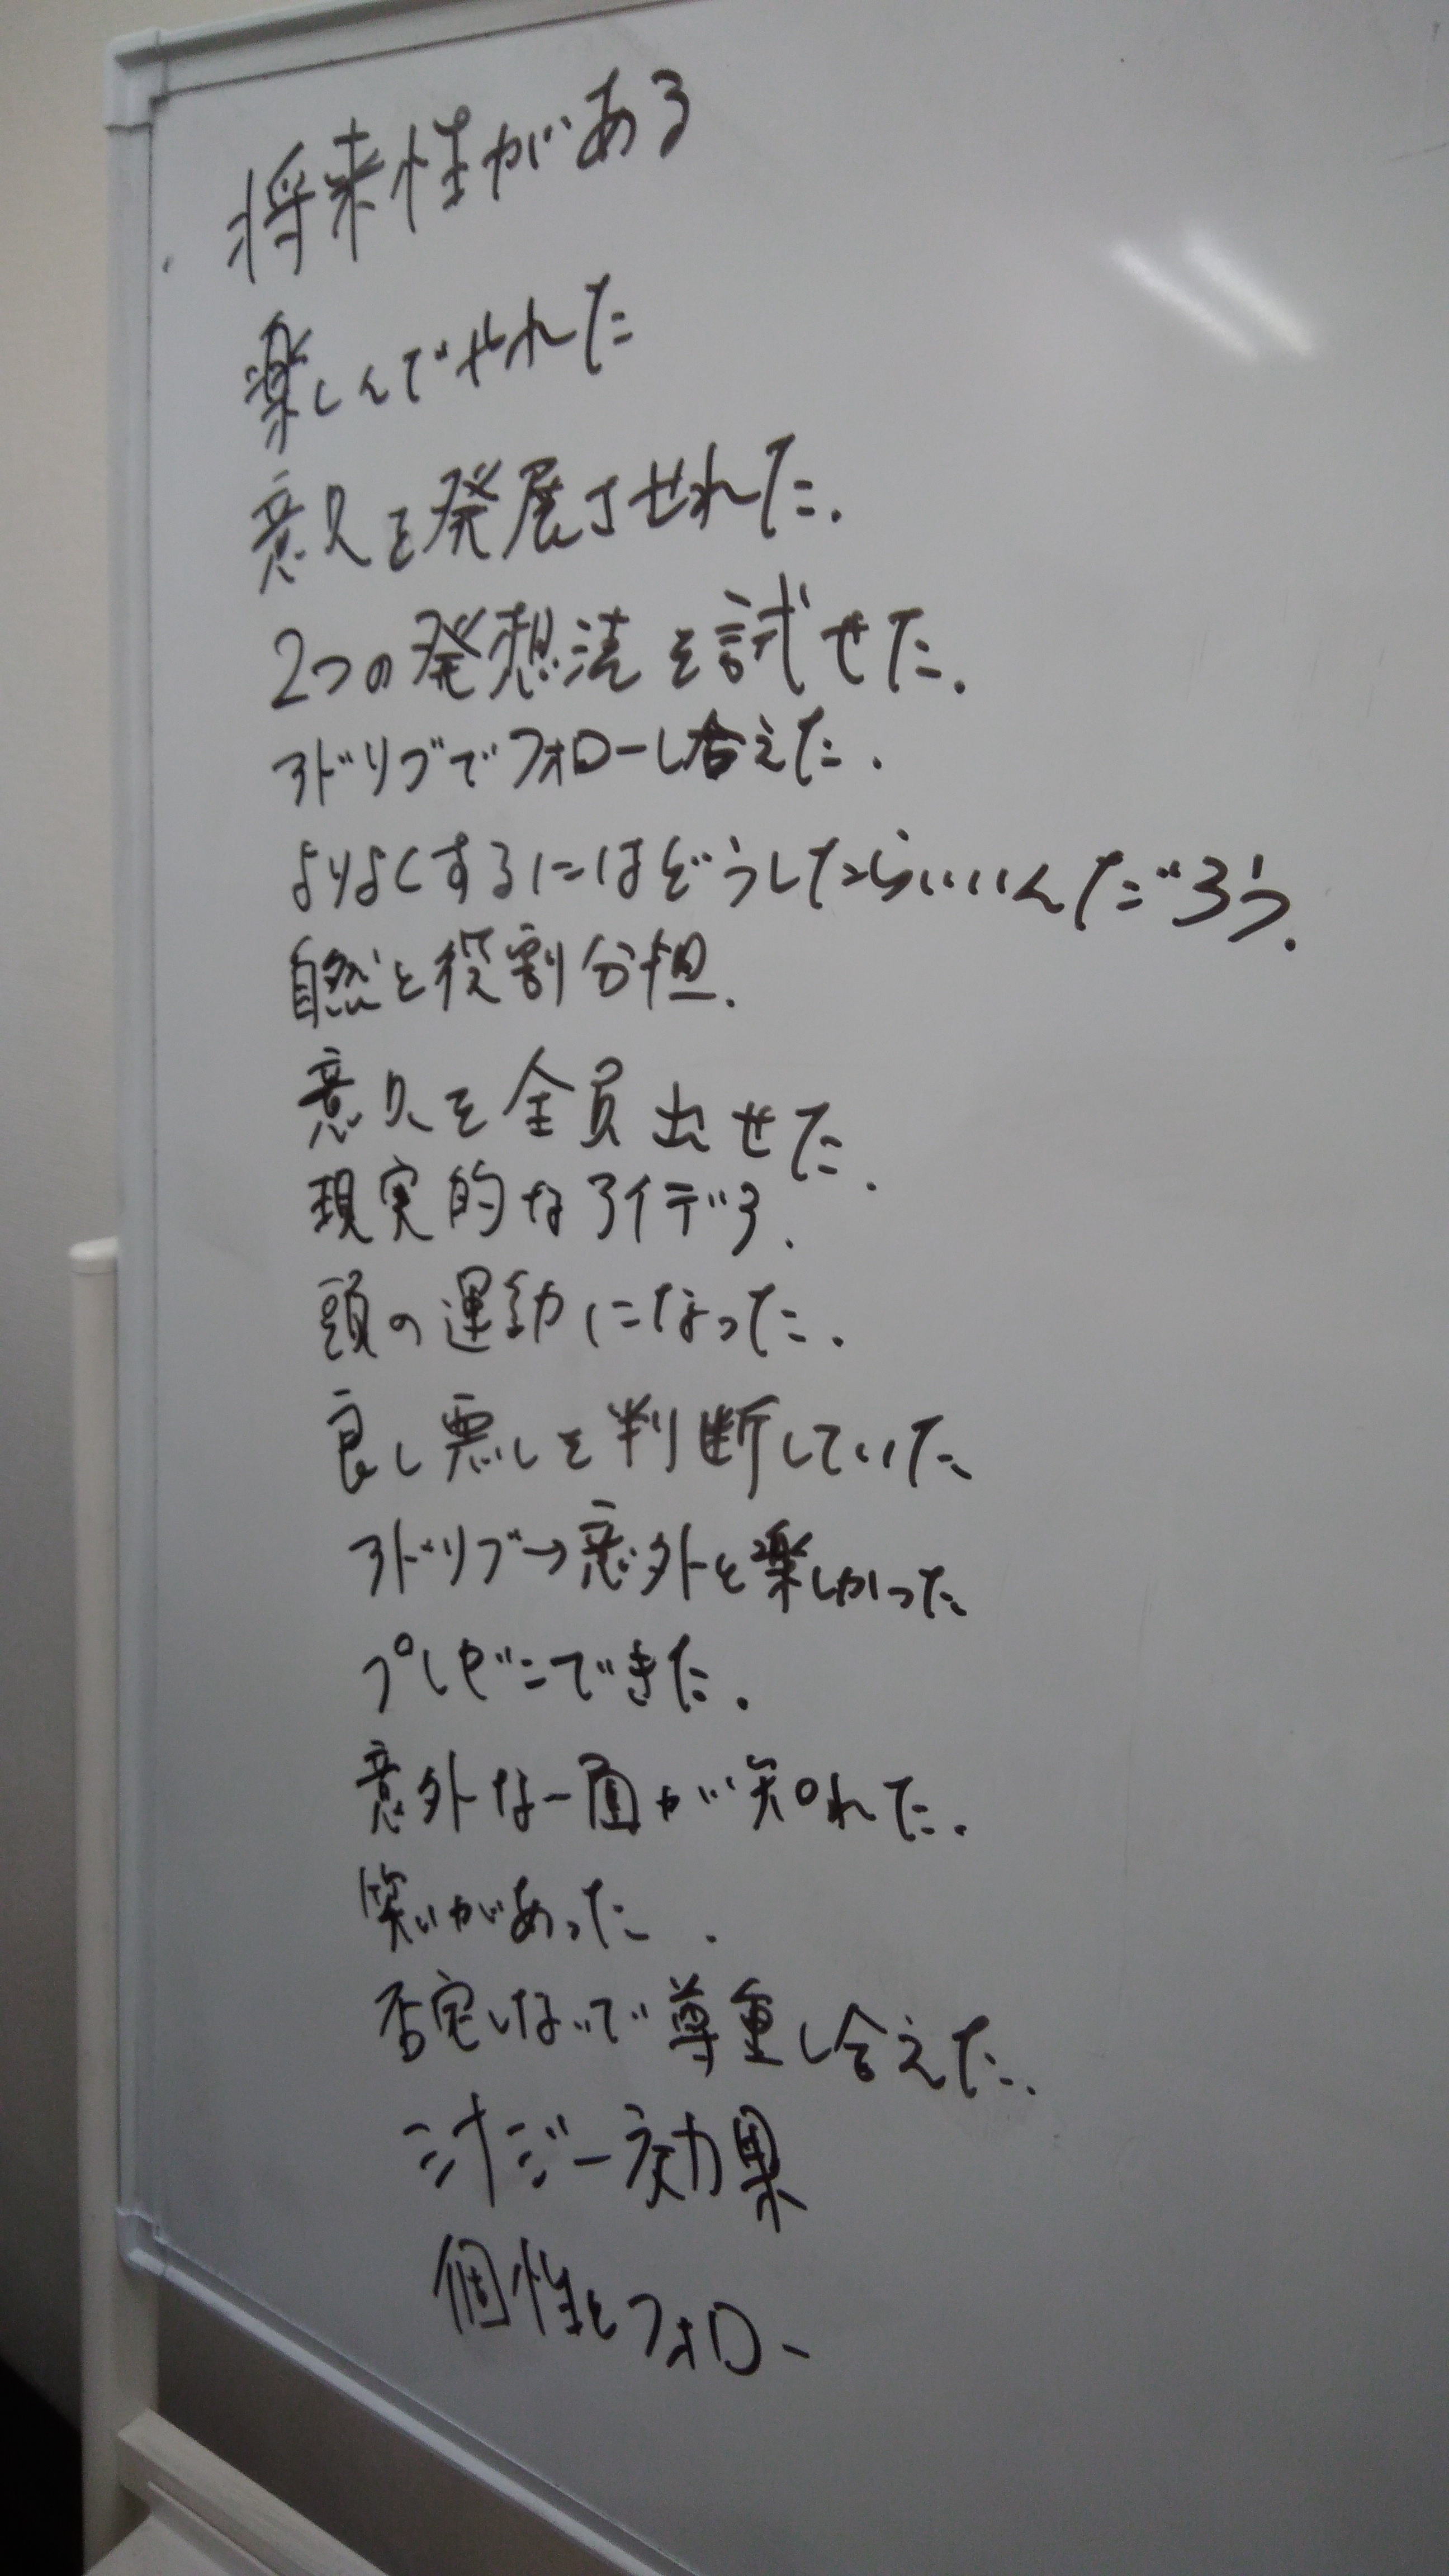 将来性がある
楽しんでやれた
意見を発展させれた.
2つの発想法を試せた.
アドリブでフォローし合えた.
よりよくするにはどうしたらいいんだろう.
自然と役割分担.
意見を全員出せた.
現実的なアイデア.
頭の運動になった.
良し悪しを判断していた
アドリブ→意外と楽しかった
プレゼンできた.
意外な一面が知れた.
笑いがあった.
否定しないで尊重し合えた.
シナジー効果
個性をフォロー